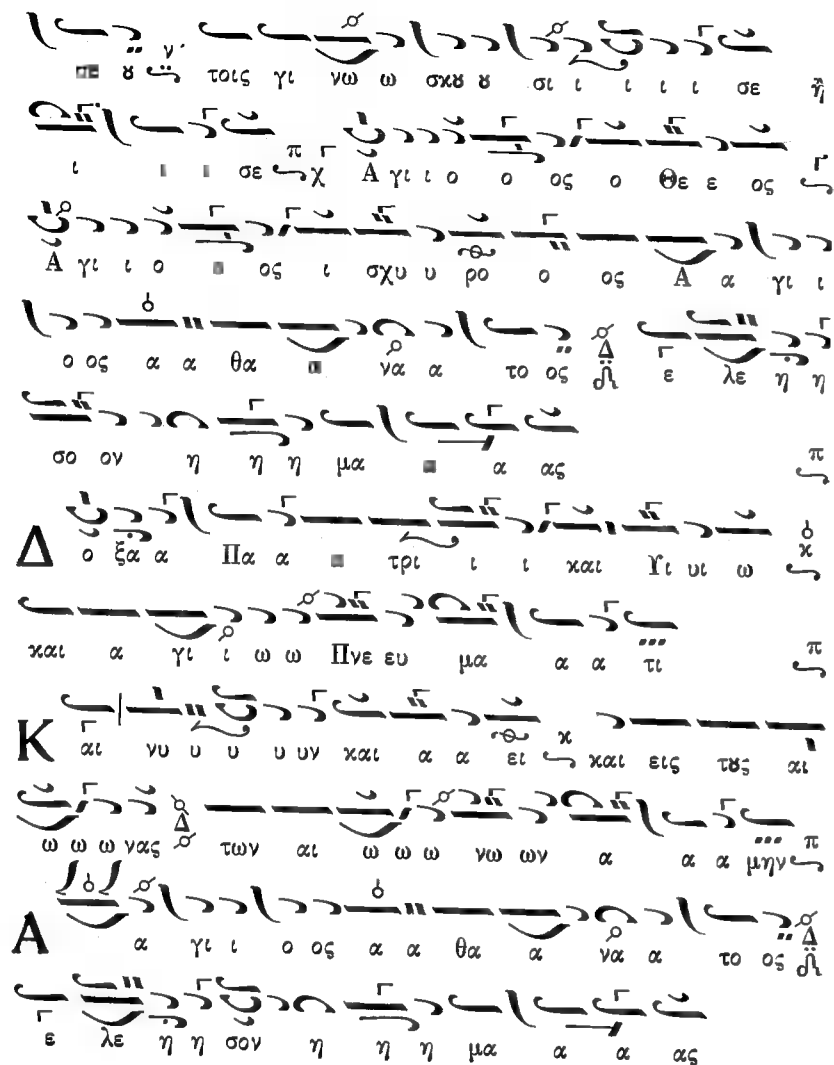 ȣ ν΄ τοις γι νω ω σκȣ ȣ σι ι ι ι ι σε ἢ
ι σε π χ Α γι ι ο ο ος ο Θε ε ος
Α γι ι ο ος ι σχυ υ ρο ο ος Α α γι ι
ο ος α α θα να α το ος Δ ε λε η η
σο ον η η η μα α ας π
Δ ο ξα α Πα α τρι ι ι και Υι υι ω κ
και α γι ι ω ω Πνε ευ μα α α τι π
Κ αι νυ υ υ υ υν και α α ει κ και εις τȣς αι
ω ω ω νας Δ των αι ω ω ω νω ων α α α μην π
Α α γι ι ο ος α α θα α να α το ος Δ
ε λε η η σον η η η μα α α ας